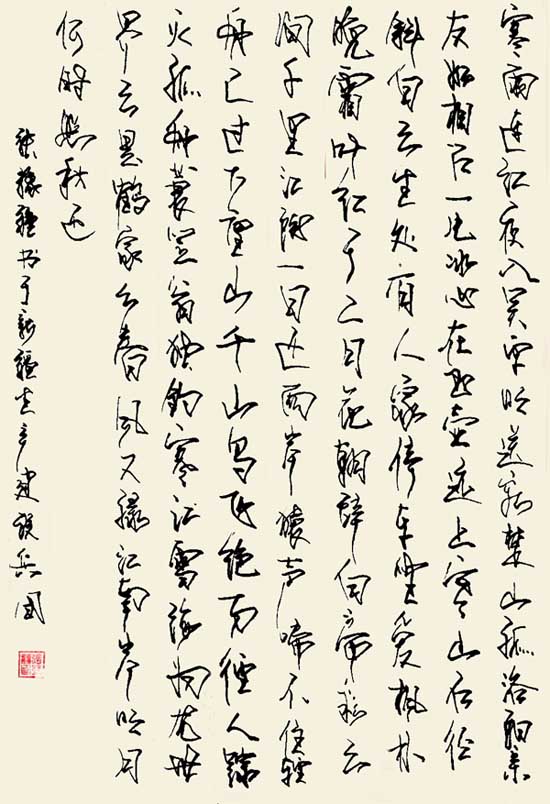 寒雨连江夜入吴平明送客楚山孤洛阳亲
友如相问一片冰心在玉壶远上寒山石径
斜白云生处有人家停车坐爱枫林
晚霜叶红于二月花朝辞白帝彩云
间千里江陵一日还两岸猿声啼不住轻
舟已过万重山千山鸟飞绝万径人踪
灭孤舟蓑笠翁独钓寒江雪
春风又绿江南岸明月
何时照我还
书于新疆生产建设兵团